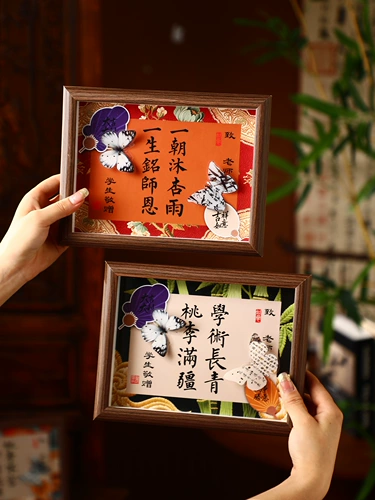 致
老師
一朝沐杏雨
一生銘師恩
學生敬贈
致
老師
學術長青
桃李滿疆
學生敬贈